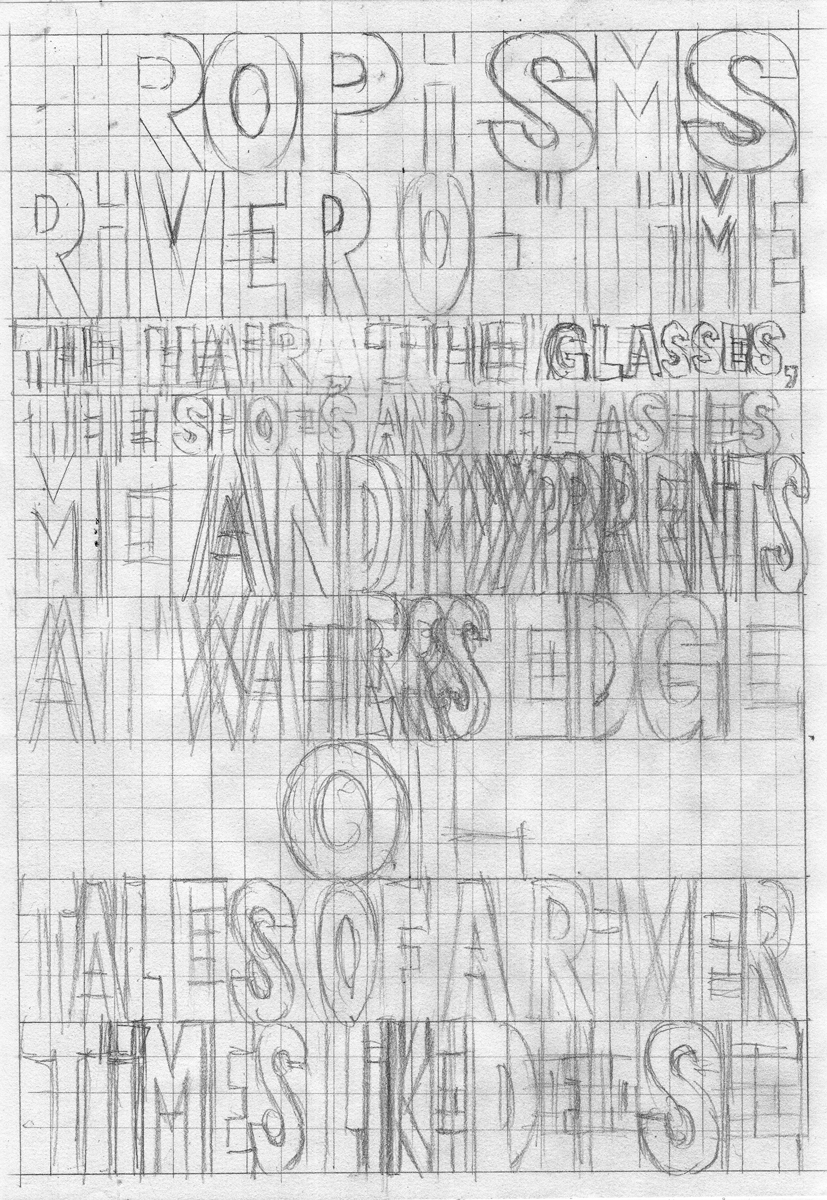 TROPISMS
RIVER OF TIME
THE HAIR, THE GLASSES,
THE SHOES AND THE ASHES
ME AND MY PARENTS
AT WATERS EDGE
TALES OF A RIVER
TIMES LIKE